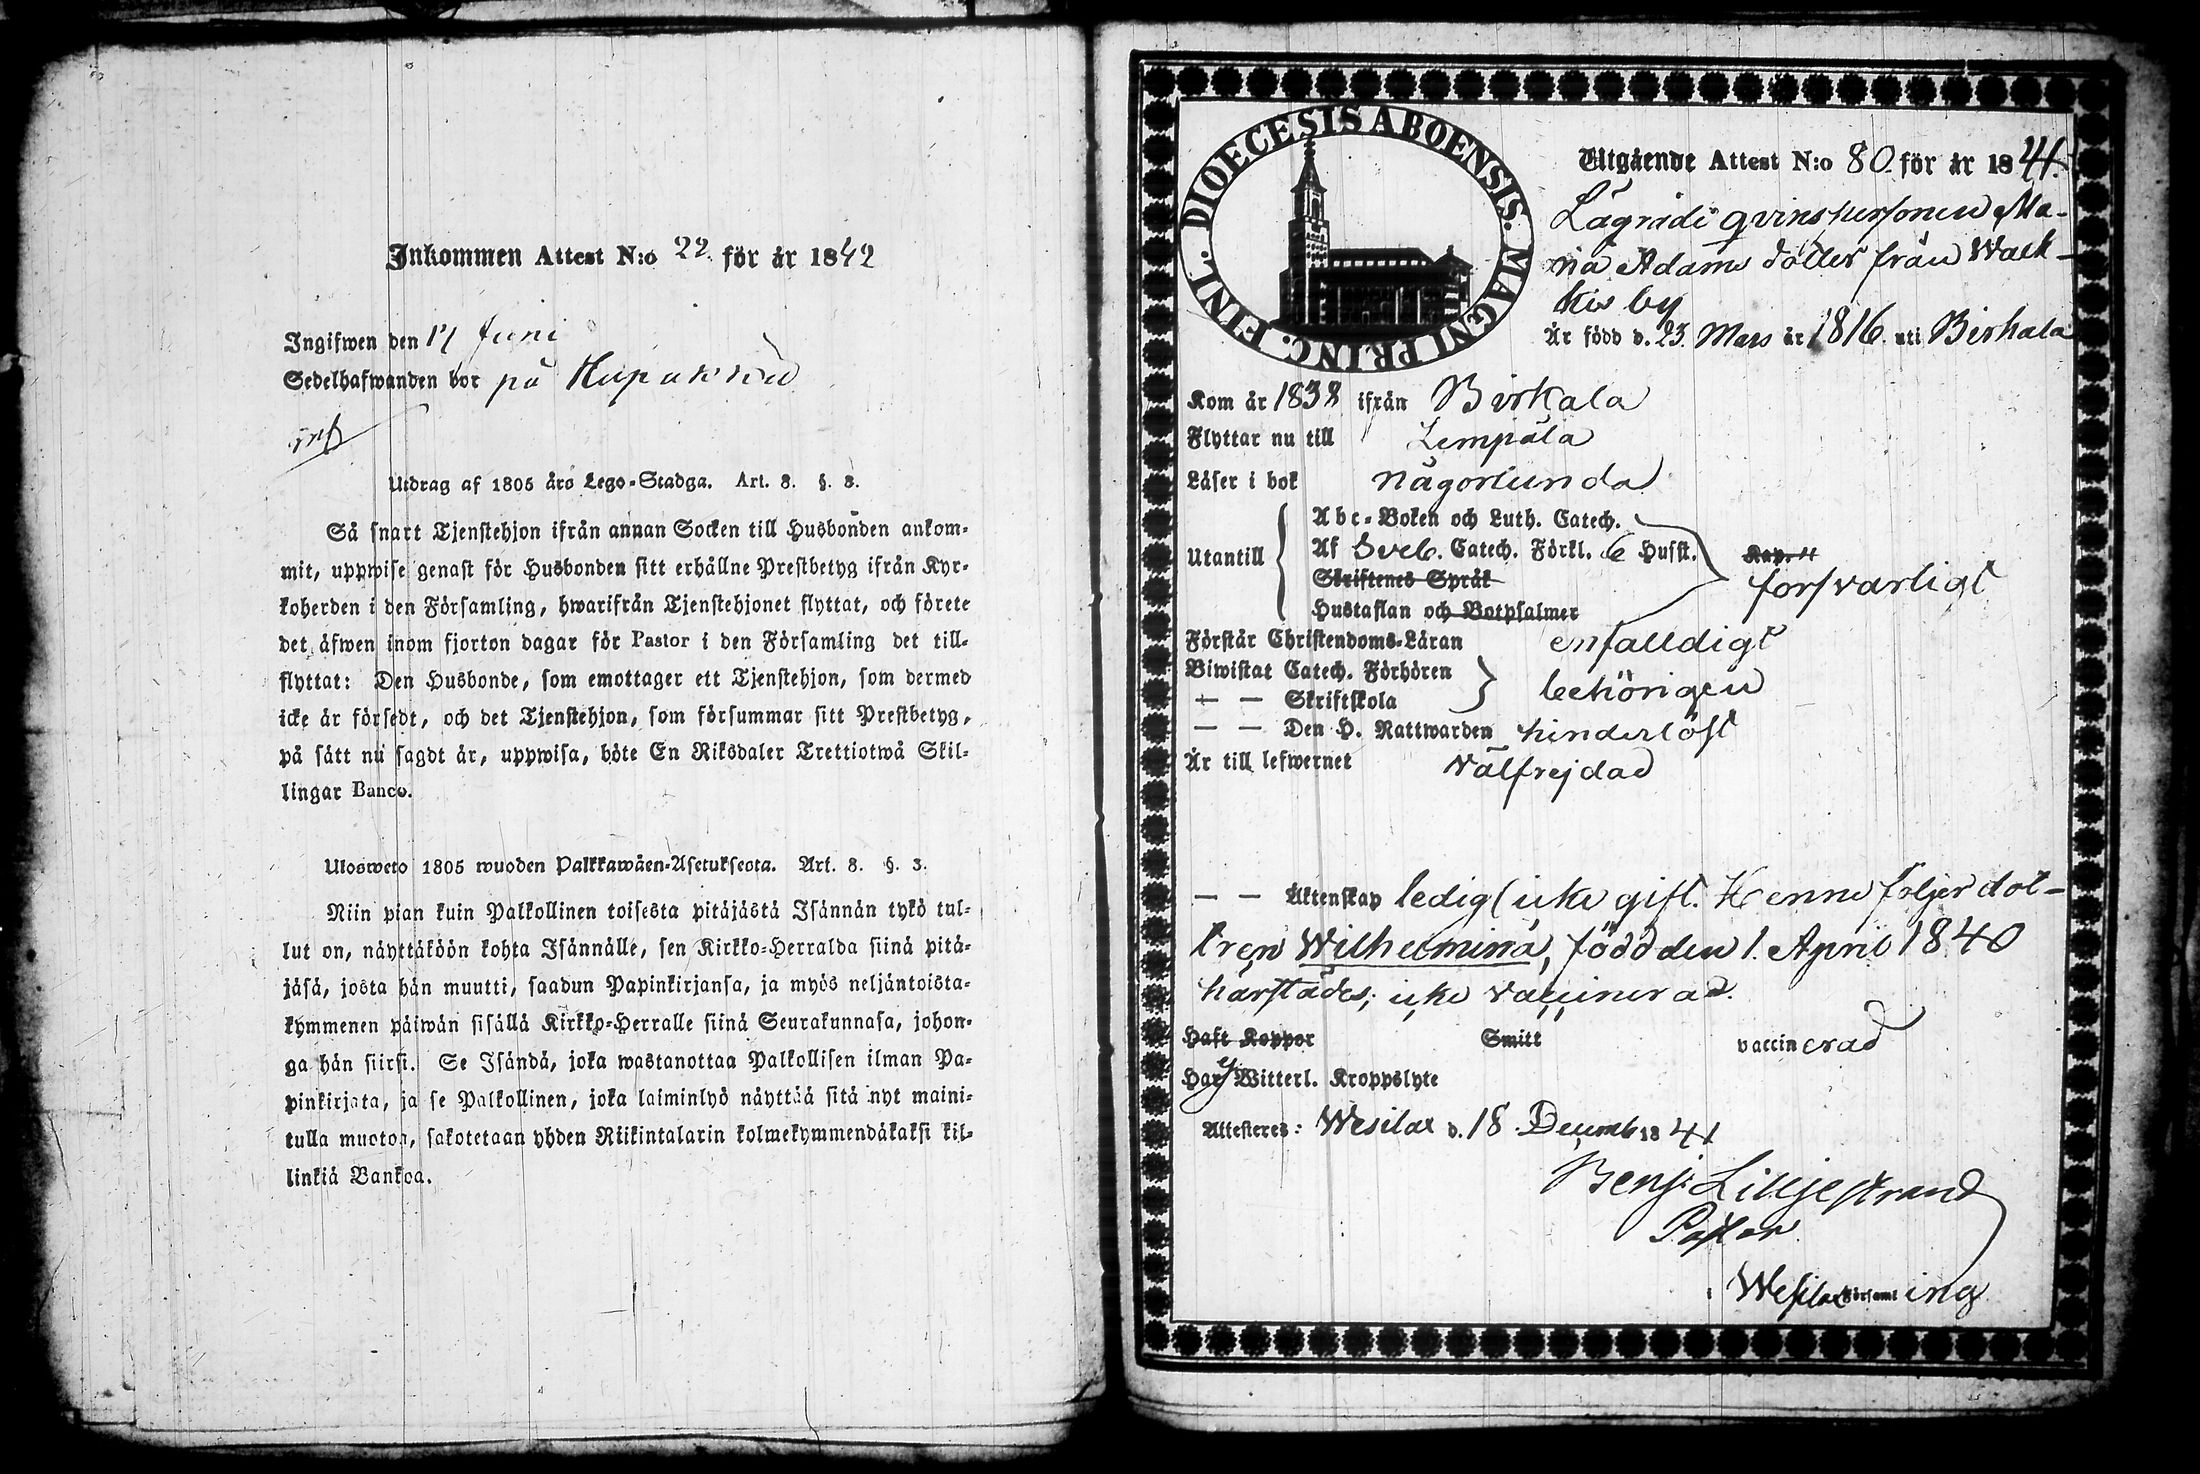 Inkommen Attest N:o 22. för år 1842
Ingifwen den 17 Juni
Sedelhafwanden bor på
Utdrag af 1805 års Lego-Stadga. Art. 8. §. 3.
Så snart Tjenstehjon ifrån annan Socken till Husbonden ankom-
mit, uppwise genast för Husbonden sitt erhållne Prestbetyg ifrån Kyr-
koherden i den Församling, hwarifrån Tjenstehjonet flyttat, och förete
det äfwen inom fjorton dagar för Pastor i den Församling det till-
flyttat: Den Husbonde, som emottager ett Tjenstehjon, som dermed
icke är försedt, och det Tjenstehjon, som försummar sitt Prestbetyg,
på sätt nu sagdt är, uppwisa, böte En Riksdaler Trettiotwå Skil-
lingar Banco.
Ulosweto 1805 wuoden Palkkawäen-Asetuksesta. Art. 8. §. 3.
Niin pian kuin Palkollinen toisesta pitäjästä Isännän tykö tul-
lut on, näyttäköön kohta Isännälle, sen Kirkko-Herralda siinä pitä-
jäsä, josta hän muutti, saadun Papinkirjansa, ja myös neljäntoista-
kymmenen päiwän sisällä Kirkko-Herralle siinä Seurakunnasa, johon-
ga hän siirsi. Se Isändä, joka wastanottaa Palkollisen ilman Pa-
pinkirjata, ja se Palkollinen, joka laiminlyö näyttää sitä nyt maini-
tulla muoton, sakotetaan yhden Riikintalarin kolmekymmendäkaksi kil-
linkiä Bankoa.
DIOECESIS ABOENSIS. MAGNI PRINC. FINL.
Utgående Attest N:o 80 för år 1841.
Lägrade qvinspersonen Ma-
ria Adams dotter från Wack-
kis by
Är född d. 23. Mars år 1816. uti Birkala
Kom år 1838 ifrån Birkala
Flyttar nu till Lempäla
Läser i bok någorlunda
Utantill
Abc-Boken och Luth. Catech.
Af Sveb. Catech. Förkl. 6 Husst. Kap.
Skriftenes Språk försvarligt
Hustaflan och Botpsalmer
Förstår Christendoms-Läran enfalldigt
Biwistat Catech. Förhören
— — Skriftskola behörigen
— — Den H. Nattwarden hinderlöst
Är till lefwernet välfrejdad
— — Äktenskap ledig (icke gift. Henne följer dot-
tren Wilhelmina, född den 1. April 1840
härstädes; icke vaccinerad.
Haft Koppor Smitt vaccinerad
Har ej Witterl. Kroppslyte
Attesteres: Wesilax d. 18 Decemb 1841
Benj. Lilljestrand
Pastor
i Wesilax Församling